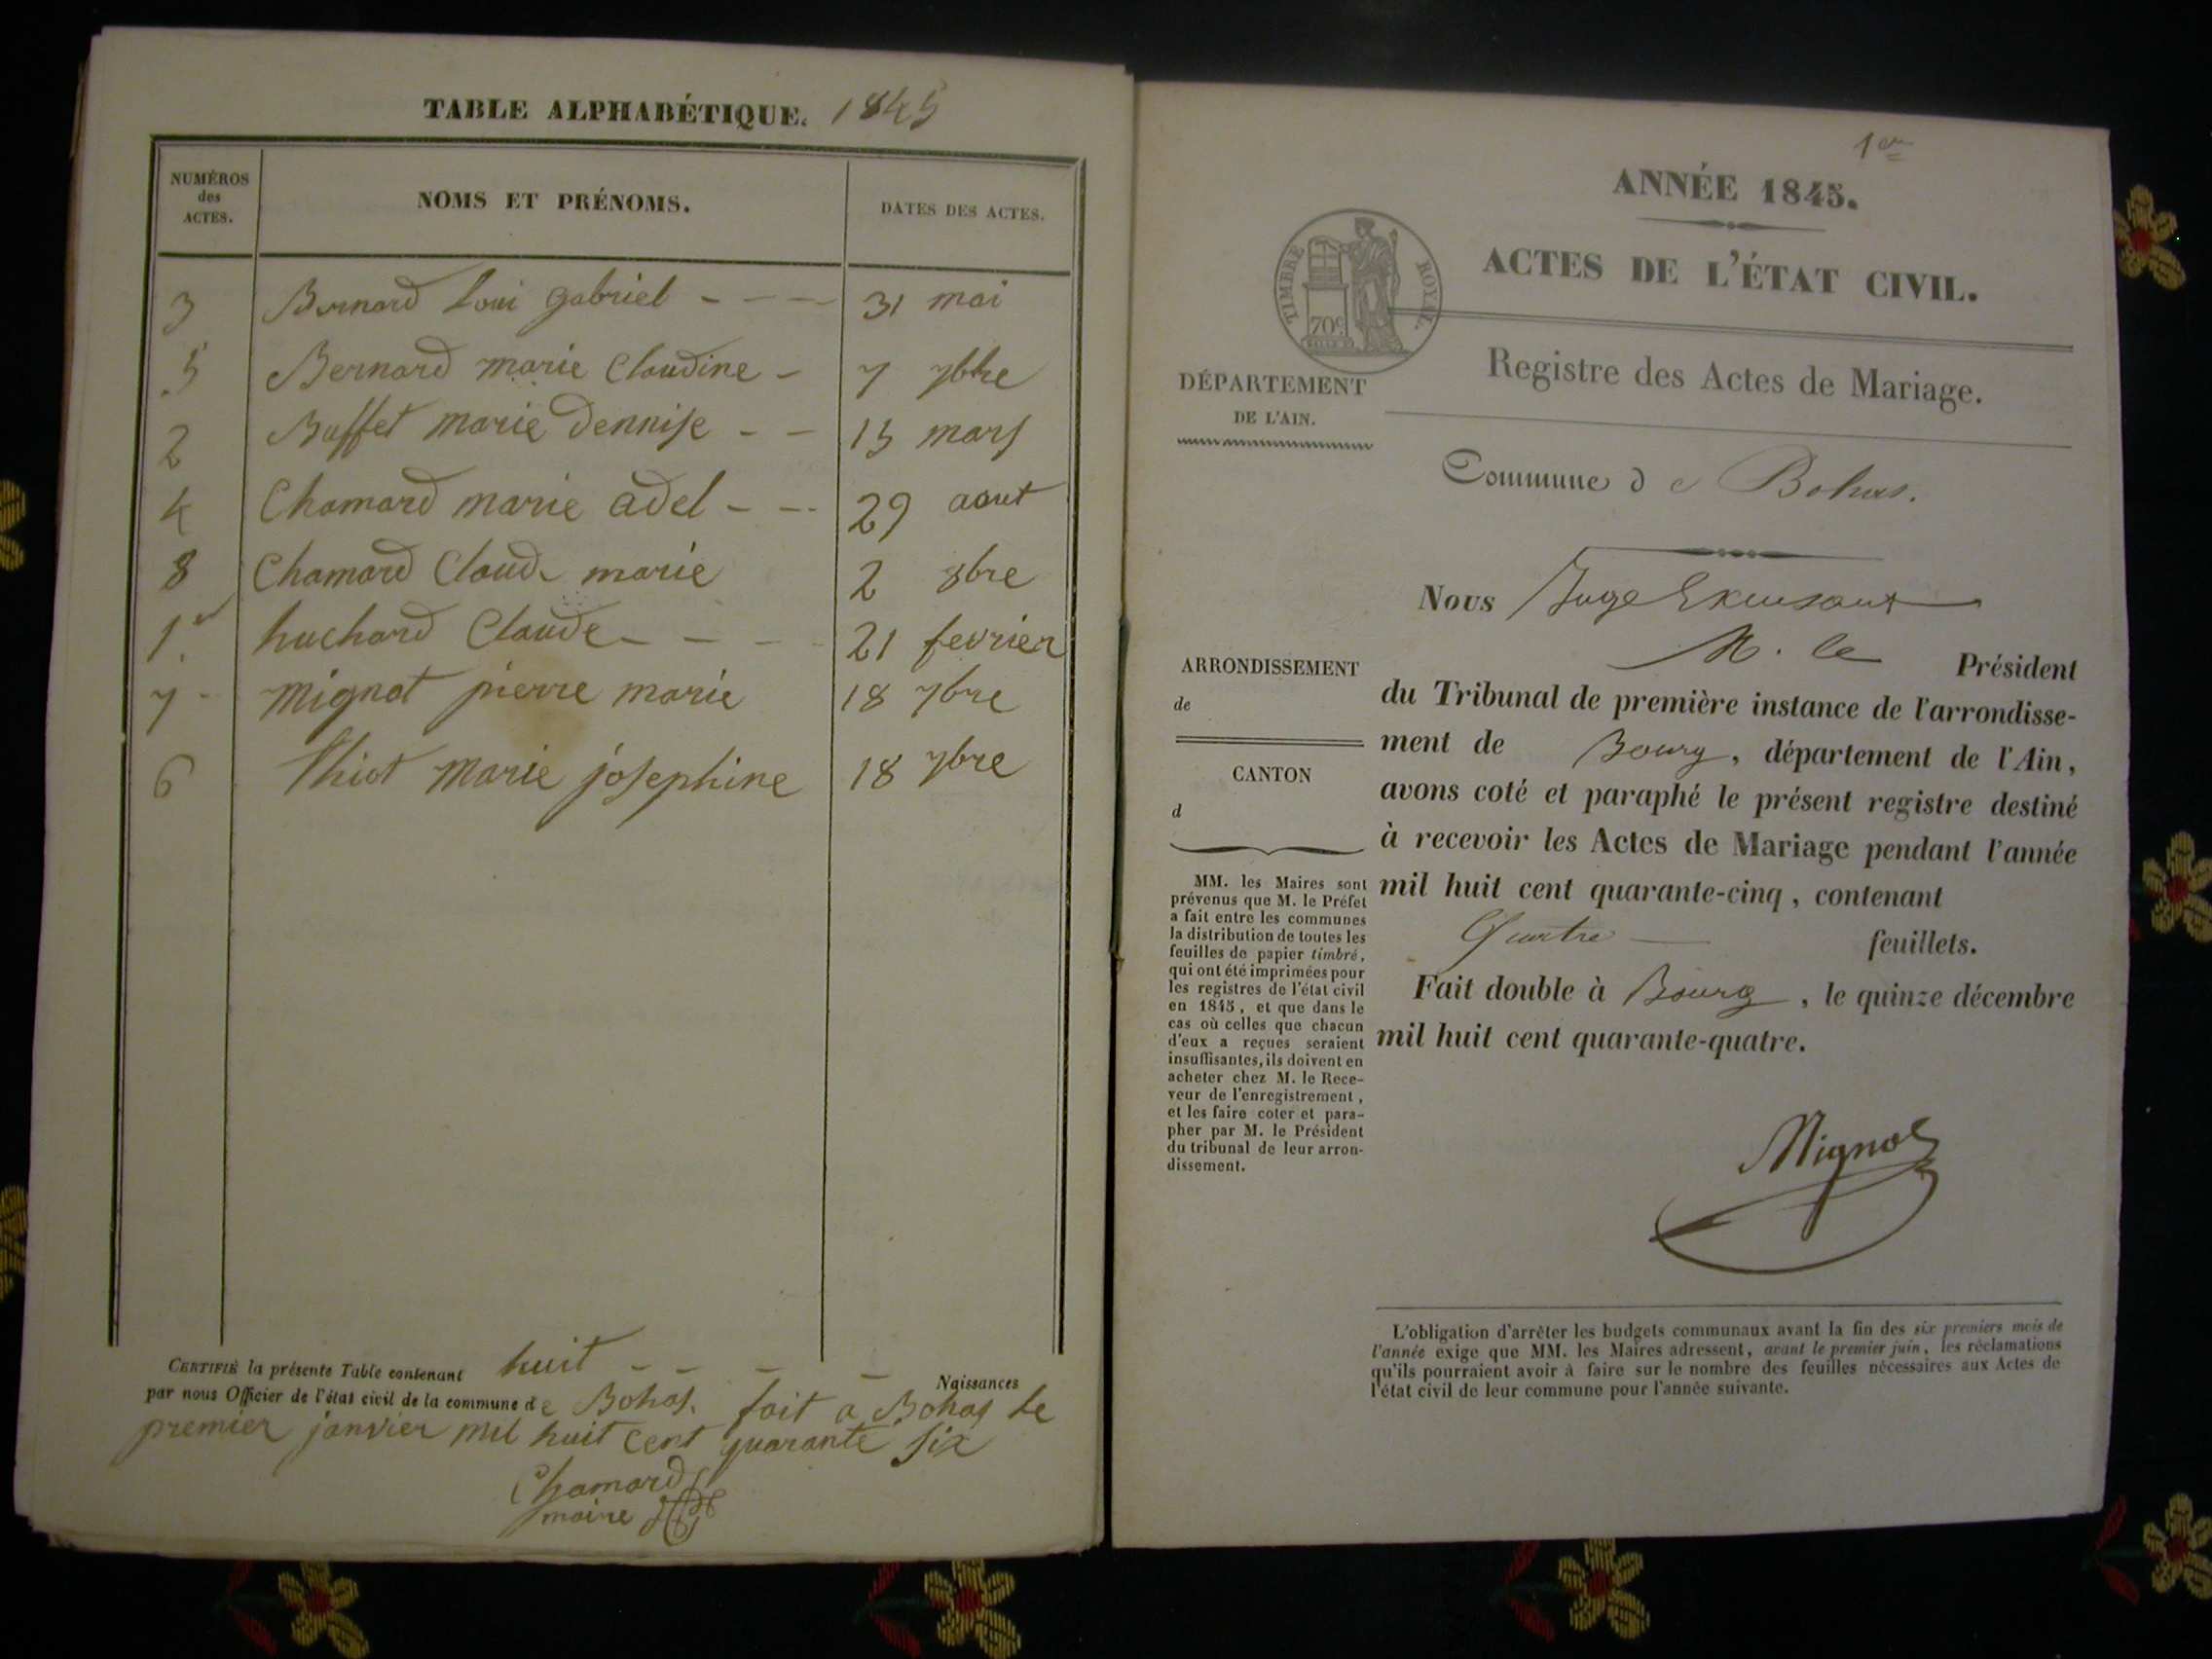 TABLE ALPHABÉTIQUE. 1845
NUMÉROS des ACTES. NOMS ET PRÉNOMS. DATES DES ACTES.
3 Bernard Loui gabriel - - - 31 mai
5 Bernard marie Claudine - 7 7bre
2 Buffet marie Dennise - - 15 mars
4 Chamard marie adel - - - 29 aout
8 Chamard Claude marie 2 8bre
1er huchard Claude - - - 21 fevrier
7 - mignot pierre marie 18 7bre
6 Thiot marie josephine 18 7bre
CERTIFIÉ la présente Table contenant huit - - - - Naissances
par nous Officier de l'état civil de la commune de Bohas. fait a Bohas le
premier janvier mil huit cent quarante six
Chamard
maire
1er
ANNÉE 1845.
ACTES DE L'ÉTAT CIVIL.
TIMBRE ROYAL.
70c
Registre des Actes de Mariage.
DÉPARTEMENT
DE L'AIN.
Commune de Bohas.
Nous Juge
M. le Président
du Tribunal de première instance de l'arrondisse-
ment de Bourg, département de l'Ain,
avons coté et paraphé le présent registre destiné
à recevoir les Actes de Mariage pendant l'année
mil huit cent quarante-cinq, contenant
Quatre feuillets.
Fait double à Bourg, le quinze décembre
mil huit cent quarante-quatre.
Mignot
ARRONDISSEMENT
de
CANTON
d
MM. les Maires sont
prévenus que M. le Préfet
a fait entre les communes
la distribution de toutes les
feuilles de papier timbré,
qui ont été imprimées pour
les registres de l'état civil
en 1845, et que dans le
cas où celles que chacun
d'eux a reçues seraient
insuffisantes, ils doivent en
acheter chez M. le Rece-
veur de l'enregistrement,
et les faire coter et para-
pher par M. le Président
du tribunal de leur arron-
dissement.
L'obligation d'arrêter les budgets communaux avant la fin des six premiers mois de
l'année exige que MM. les Maires adressent, avant le premier juin, les réclamations
qu'ils pourraient avoir à faire sur le nombre des feuilles nécessaires aux Actes de
l'état civil de leur commune pour l'année suivante.